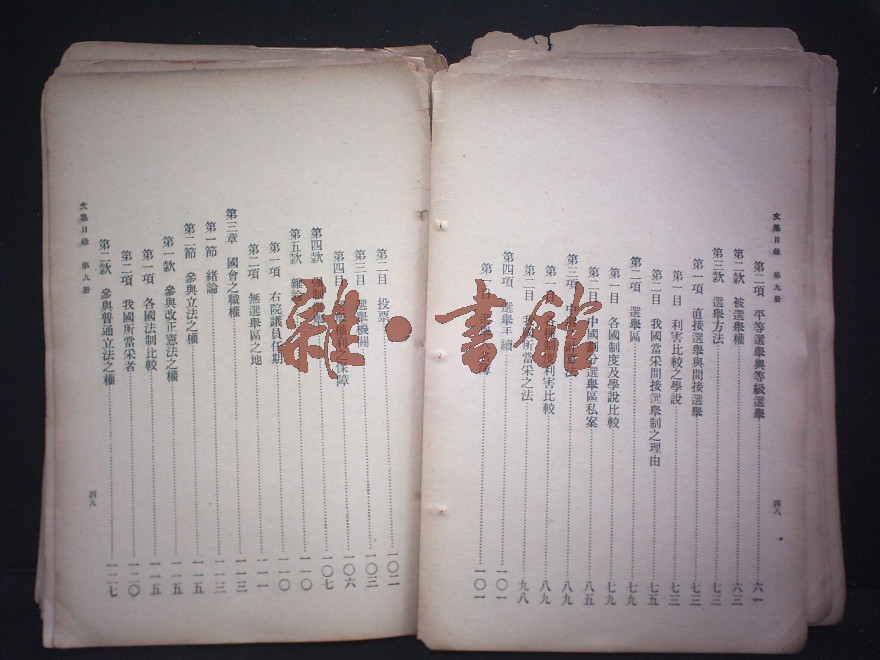 文集目錄 第九册
第二項 平等選舉與等級選舉 六一
第二款 被選舉權 六三
第三款 選舉方法 七三
第一項 直接選舉與間接選舉 七三
第一目 利害比較之學說 七三
第二目 我國當采間接選舉制之理由 七五
第二項 選舉區 七九
第一目 各國制度及學說比較 七九
第二目 中國劃分選舉區私案 八五
第三項 八九
第一目 利害比較 八九
第二目 我國所當采之法 九八
第四項 選舉手續 一〇一
第一目 一〇一
四八
雜·書館
文集目錄 第九册
第二目 投票 一〇二
第三目 選舉機關 一〇三
第四目 之保障 一〇六
第四款 一〇七
第五款 雜論 一一〇
第一項 右院議員任期 一一〇
第二項 無選舉區之地 一一一
第三章 國會之職權 一一三
第一節 緒論 一一三
第二節 參與立法之權 一一五
第一款 參與改正憲法之權 一一五
第一項 各國法制比較 一一五
第二項 我國所當采者 一二〇
第二款 參與普通立法之權 一二七
四九